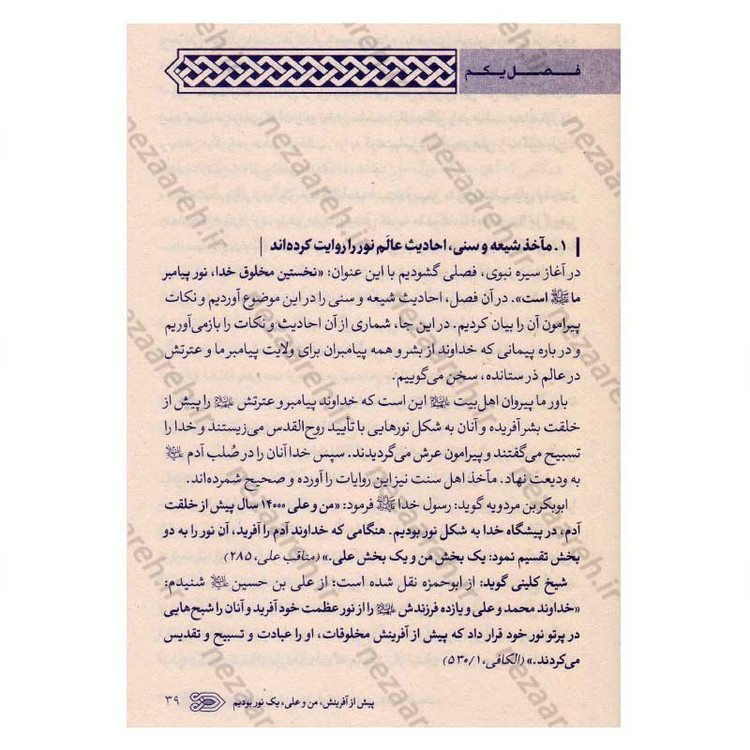 فـصـل یـکـم
۱. مآخذ شیعه و سنی، احادیث عالَم نور را روایت کرده‌اند
در آغاز سیره نبوی، فصلی گشودیم با این عنوان: «نخستین مخلوق خدا، نور پیامبر
ما ﷺ است». در آن فصل، احادیث شیعه و سنی را در این موضوع آوردیم و نکات
پیرامون آن را بیان کردیم. در این جا، شماری از آن احادیث و نکات را بازمی‌آوریم
و در باره پیمانی که خداوند از بشر و همه پیامبران برای ولایت پیامبر ما و عترتش
در عالم ذر ستانده، سخن می‌گوییم.
باور ما پیروان اهل‌بیت این است که خداوند پیامبر و عترتش را پیش از
خلقت بشر آفریده و آنان به شکل نورهایی با تأیید روح‌القدس می‌زیستند و خدا را
تسبیح می‌گفتند و پیرامون عرش می‌گردیدند. سپس خدا آنان را در صُلب آدم
به ودیعت نهاد. مآخذ اهل سنت نیز این روایات را آورده و صحیح شمرده‌اند.
ابوبکر بن مردویه گوید: رسول خدا ﷺ فرمود: «من و علی ۱۴۰۰۰ سال پیش از خلقت
آدم، در پیشگاه خدا به شکل نور بودیم. هنگامی که خداوند آدم را آفرید، آن نور را به دو
بخش تقسیم نمود: یک بخش من و یک بخش علی.» (مناقب علی، ۲۸۵)
شیخ کلینی گوید: از ابوحمزه نقل شده است: از علی بن حسین شنیدم:
«خداوند محمد و علی و یازده فرزندش را از نور عظمت خود آفرید و آنان را شبح‌هایی
در پرتو نور خود قرار داد که پیش از آفرینش مخلوقات، او را عبادت و تسبیح و تقدیس
می‌کردند.» (الکافی، ۵۳۰/۱)
پیش از آفرینش، من و علی، یک نور بودیم ۳۹
nezaareh.ir